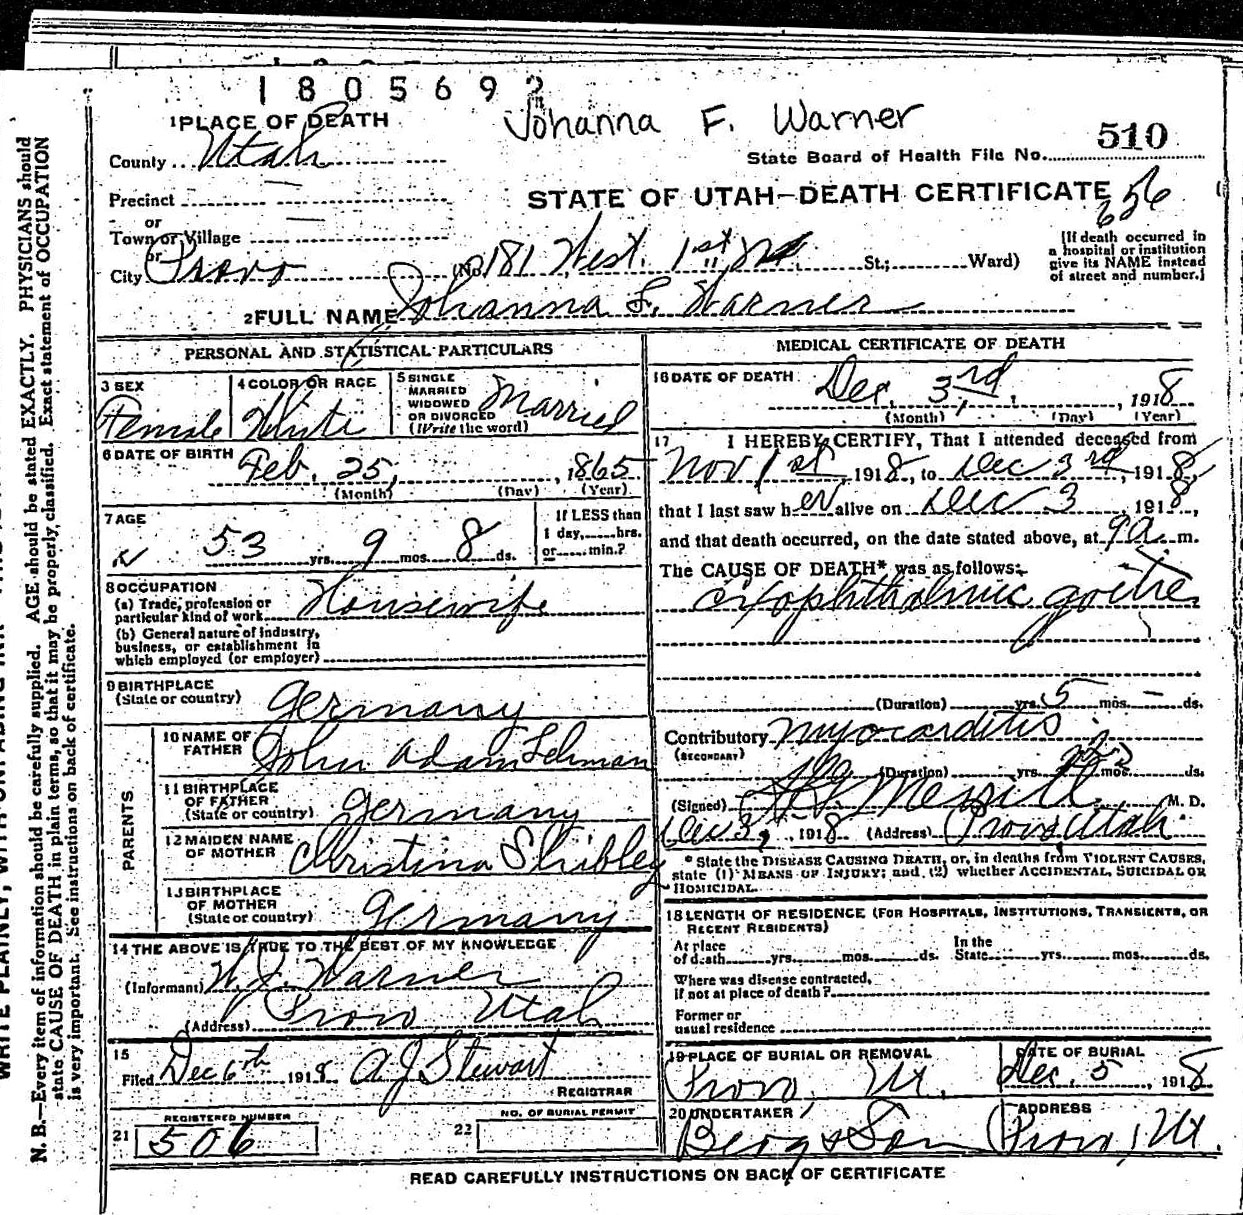 1805692
Johanna F. Warner
1 PLACE OF DEATH
County Utah
State Board of Health File No. 510
Precinct —
STATE OF UTAH—DEATH CERTIFICATE
656
or
Town or Village —
or
City Provo (No. 181 West 1st St.; Ward)
[If death occurred in a hospital or institution give its NAME instead of street and number.]
2 FULL NAME Johanna F. Warner
PERSONAL AND STATISTICAL PARTICULARS
3 SEX Female
4 COLOR OR RACE White
5 SINGLE MARRIED WIDOWED OR DIVORCED (Write the word) Married
6 DATE OF BIRTH Feb. 25, 1865
(Month) (Day) (Year)
7 AGE 53 yrs. 9 mos. 8 ds.
If LESS than 1 day, hrs. or min.?
8 OCCUPATION
(a) Trade, profession or particular kind of work Housewife
(b) General nature of industry, business, or establishment in which employed (or employer)
9 BIRTHPLACE (State or country) Germany
PARENTS
10 NAME OF FATHER John Adam Lehman
11 BIRTHPLACE OF FATHER (State or country) Germany
12 MAIDEN NAME OF MOTHER Christina Shibley
13 BIRTHPLACE OF MOTHER (State or country) Germany
14 THE ABOVE IS TRUE TO THE BEST OF MY KNOWLEDGE
(Informant) W. J. Warner
(Address) Provo Utah
15 Filed Dec 6th 1918 A J Stewart
REGISTRAR
REGISTERED NUMBER
21 506
NO. OF BURIAL PERMIT
22
MEDICAL CERTIFICATE OF DEATH
16 DATE OF DEATH Dec. 3rd, 1918
(Month) (Day) (Year)
17 I HEREBY CERTIFY, That I attended deceased from
Nov 1st, 1918, to Dec 3rd, 1918,
that I last saw her alive on Dec 3, 1918,
and that death occurred, on the date stated above, at 9 a. m.
The CAUSE OF DEATH* was as follows:
Exophthalmic goitre
(Duration) yrs. 5 mos. — ds.
Contributory Myocarditis
(SECONDARY)
(Duration) yrs. mos. ds.
(Signed) Merrill M. D.
Dec 3, 1918 (Address) Provo Utah
* State the DISEASE CAUSING DEATH, or, in deaths from VIOLENT CAUSES, state (1) MEANS OF INJURY; and (2) whether ACCIDENTAL, SUICIDAL OR HOMICIDAL.
18 LENGTH OF RESIDENCE (FOR HOSPITALS, INSTITUTIONS, TRANSIENTS, OR RECENT RESIDENTS)
At place of death yrs. mos. ds. In the State yrs. mos. ds.
Where was disease contracted, if not at place of death?
Former or usual residence
19 PLACE OF BURIAL OR REMOVAL Provo, Ut.
DATE OF BURIAL Dec. 5, 1918
20 UNDERTAKER Berg & Son
ADDRESS Provo, Ut.
READ CAREFULLY INSTRUCTIONS ON BACK OF CERTIFICATE
N. B.—Every item of information should be carefully supplied. AGE should be stated EXACTLY. PHYSICIANS should
state CAUSE OF DEATH in plain terms, so that it may be properly classified. Exact statement of OCCUPATION
is very important. See instructions on back of certificate.